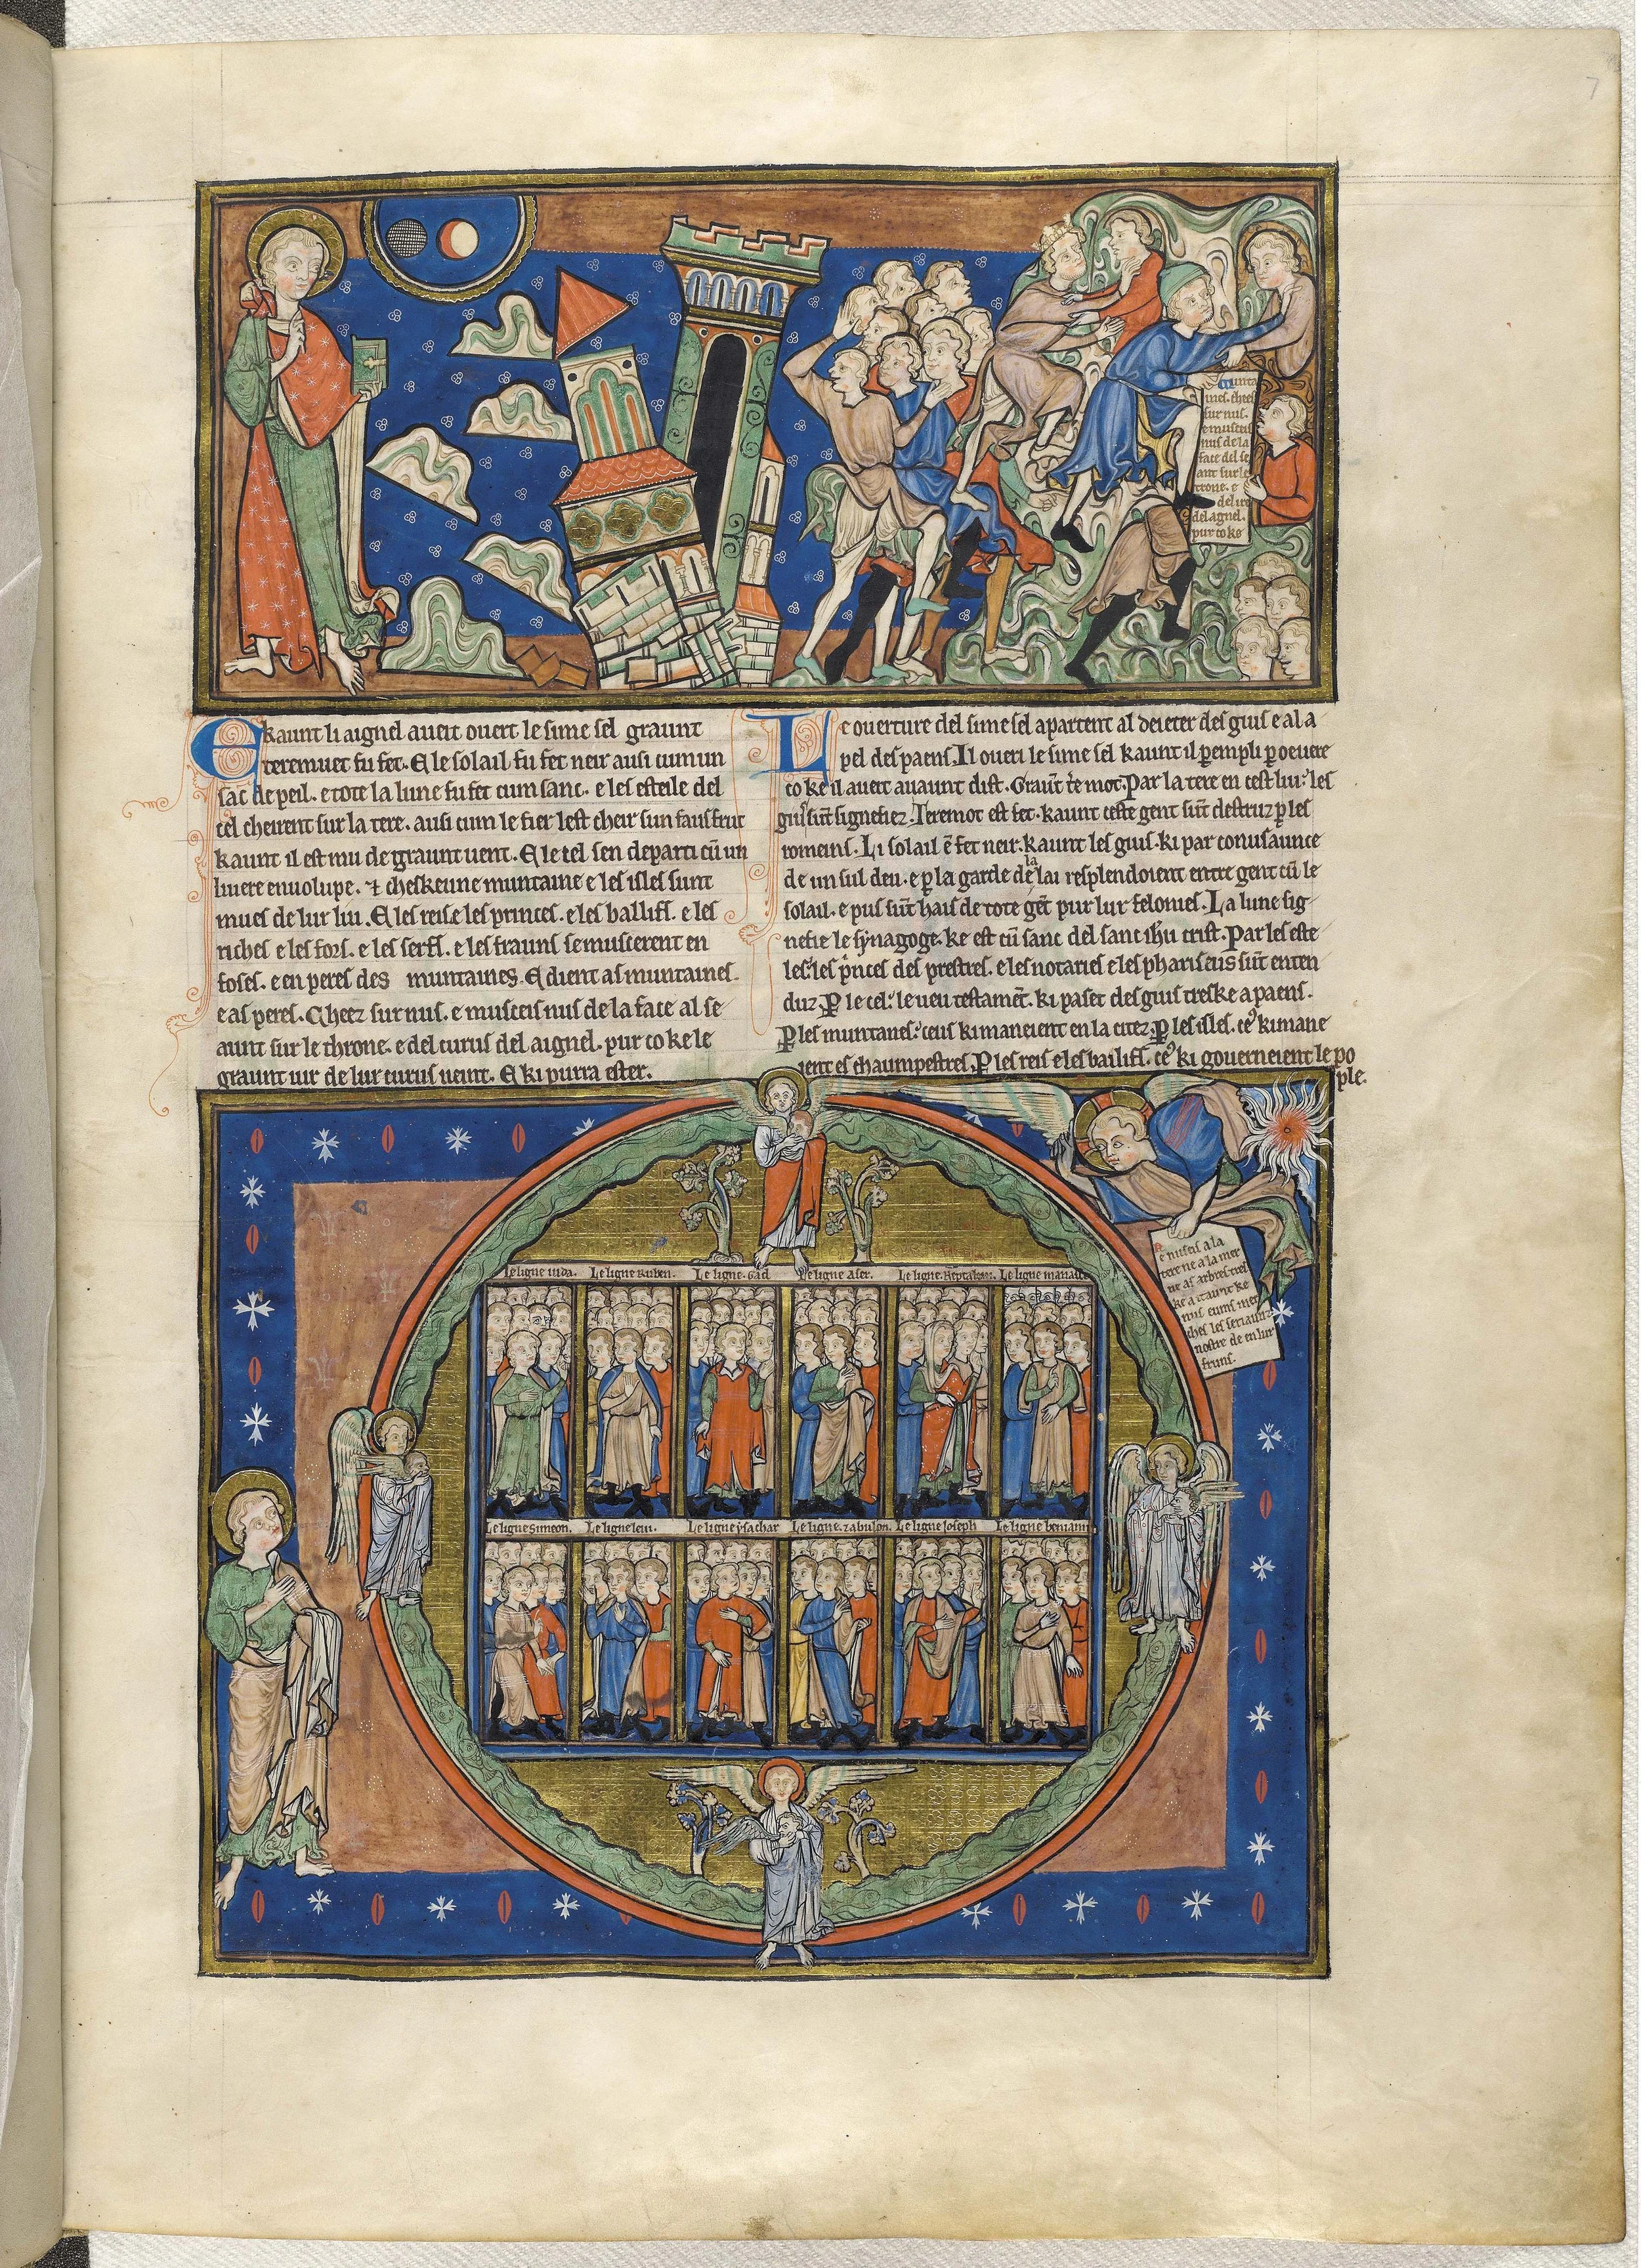 7
Muntai
nes. cheez
sur nus.
e musceis
nus de la
face del se
ant sur le
trone. e
del ire
del agnel.
pur co ke
E kaunt li aignel aueit ouert le sime sel graunt
teremuet fu fet. E le solail fu fet neir ausi cum un
sac de peil. e tote la lune fu fet cum sanc. e les esteile del
cel cheirent sur la tere. ausi cum le fier lest cheir sun faus frut
kaunt il est mu de graunt uent. E le cel sen departi cū un
liuere enuolupe. ⁊ cheskeune muntaine e les isles sunt
mues de lur liu. E les reis e les princes. e les bailifs. e les
riches e les fors. e les serfs. e les frauns se muscerent en
foses. e en peres des muntaines. E dient as muntaines.
e as peres. Cheez sur nus. e musceis nus de la face al se
aunt sur le throne. e del curus del aignel. pur co ke le
graunt iur de lur curus ueint. E ki purra ester.
Le ouerture del sime sel apartent al deieter des gius e al a
pel des paens. Il oueri le sime sel kaunt il pempli p oeuere
co ke il aueit auaunt dist. Graūt t̄e mot. Par la tere en cest liu: les
gius sūt signefiez. Teremot est fet. kaunt ceste gent sūt destruz p les
romeins. Li solail ē fet neir. kaunt les gius. ki par conusaunce
de un sul deu. e p la garde de la lai resplendoient entre gent cū le
solail. e pus sūt hais de tote gēt pur lur felonies. La lune sig
nefie le synagoge. ke est cū sanc del sanc ihu crist. Par les este
les: les pnces des prestres. e les notaries e les phariseus sūt enten
duz. P le cel: le ueu testamēt. ki paset des gius treske a paens.
P les muntanes: ceus ki maneient en la citez. P les isles. ceꝰ ki mane
ient es chaumpestres. P les reis e les bailifs. ceꝰ ki gouerneient le po
ple.
Ne nuseis a la
tere ne a la mer
ne as arbres tres
ke a itaunt ke
nus eums mer
ches les seriaunz
nostre de en lur
fruns.
Le ligne iuda. Le ligne Ruben. Le ligne. Gad Le ligne Aser. Le ligne. Neptalim. Le ligne manasse
Le ligne Simeon. Le ligne leui. Le ligne ysachar Le ligne. zabulon. Le ligne Ioseph Le ligne beniamin